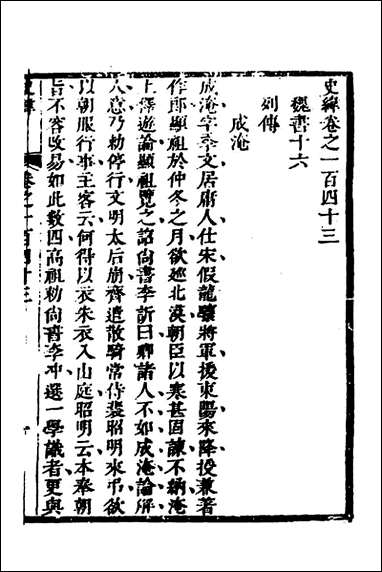 史緯卷之一百四十三
魏書十六
列傳
成淹
成淹字季文居庸人仕宋假龍驤將軍後東陽來降授兼著
作郎顯祖於仲冬之月欲巡北漠朝臣以寒甚固諫不納淹
上釋遊論顯祖覽之詔尚書李訢曰卿諸人不如成淹論解
人意乃勅停行文明太后崩齊遣散騎常侍裴昭明來弔欲
以朝服行事主客云何得以衣朱衣入山庭昭明云本奉朝
旨不容改易如此數四高祖勅尚書李冲選一學識者更與
卷之一百四十三